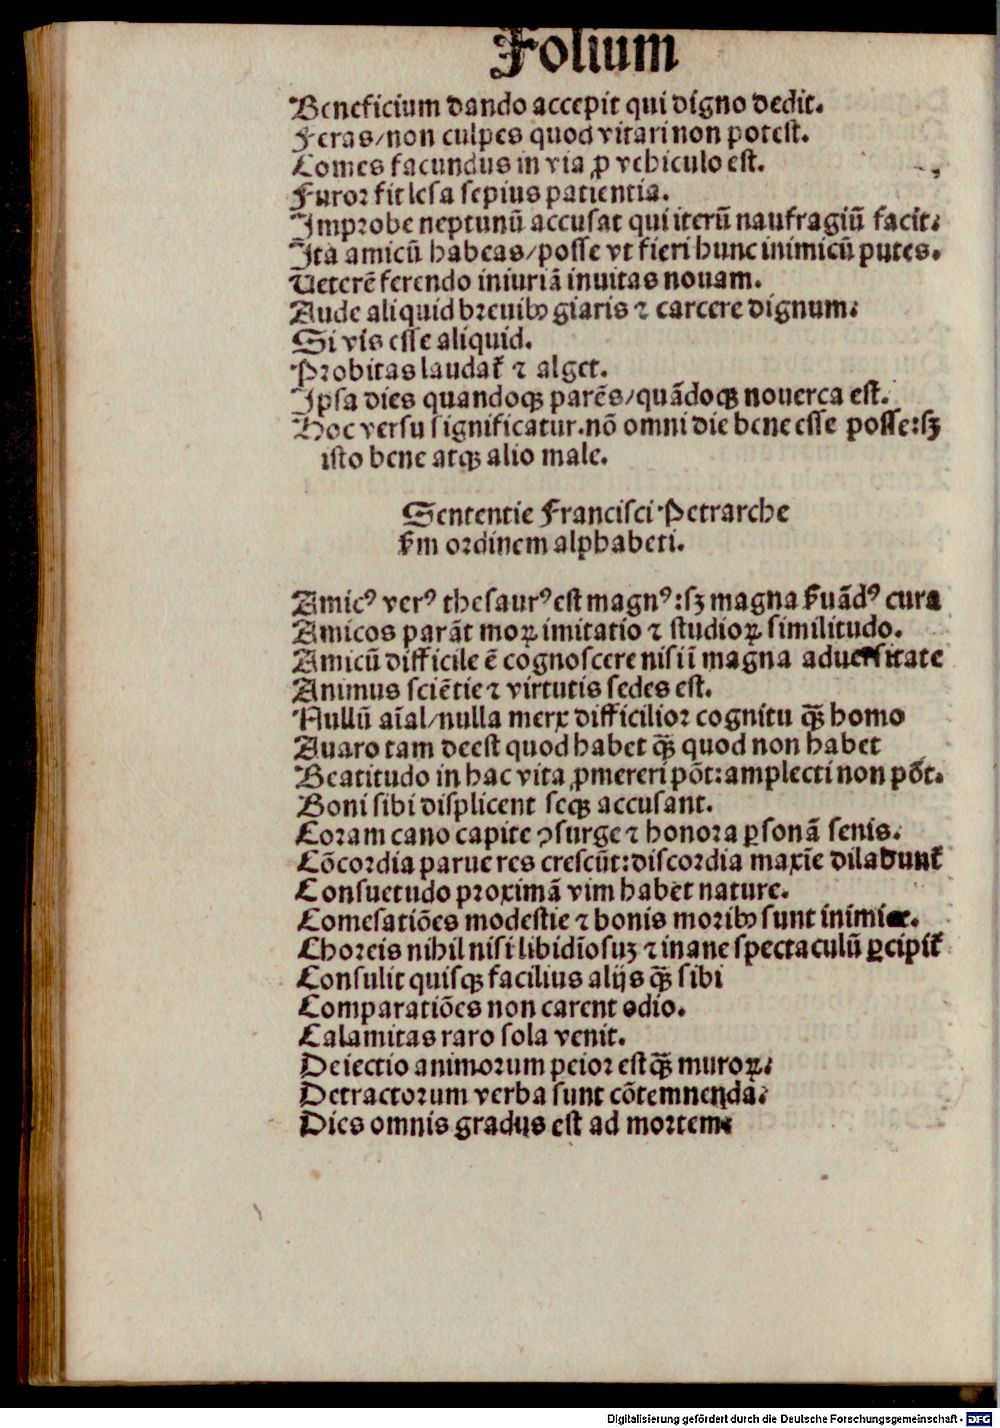 Folium
Beneficium dando accepit qui digno dedit.
Feras/non culpes quod vitari non potest.
Comes facundus in via ꝓ vehiculo est.
Furor fit lesa sepius patientia.
Improbe neptunū accusat qui iterū naufragiū facit.
Ita amicū habeas/posse vt fieri hunc inimicū putes.
Ueterē ferendo iniuriā inuitas nouam.
Aude aliquid breuibꝰ giaris ⁊ carcere dignum.
Si vis esse aliquid.
Probitas laudat᷑ ⁊ alget.
Ipsa dies quandoqꝫ parēs/quādoqꝫ nouerca est.
Hoc versu significatur.nō omni die bene esse posse:sꝫ
isto bene atqꝫ alio male.
Sententie Francisci Petrarche
ẜm ordinem alphabeti.
Amicꝰ verꝰ thesaurꝰ est magnꝰ:sꝫ magna ẜuādꝰ cura
Amicos parāt moꝝ imitatio ⁊ studioꝝ similitudo.
Amicū difficile ē cognoscere nisi ī magna aduersitate
Animus sciētie ⁊ virtutis sedes est.
Nullū aīal/nulla merx difficilior cognitu qꝫ̄ homo
Auaro tam deest quod habet qꝫ̄ quod non habet
Beatitudo in hac vita ꝓmereri pōt:amplecti non pōt.
Boni sibi displicent seqꝫ accusant.
Coram cano capite ꝯsurge ⁊ honora ꝑsonā senis.
Cōcordia parue res crescūt:discordia maxīe dilabunt᷑
Consuetudo proximā vim habet nature.
Comesatiōes modestie ⁊ bonis moribꝰ sunt inimice.
Choreis nihil nisi libidīosuꝫ ⁊ inane spectaculū ꝑcipit᷑
Consulit quisqꝫ facilius alijs qꝫ̄ sibi
Comparatiōes non carent odio.
Calamitas raro sola venit.
Deiectio animorum peior est qꝫ̄ muroꝝ.
Detractorum verba sunt cōtemnenda.
Dies omnis gradus est ad mortem.
Digitalisierung gefördert durch die Deutsche Forschungsgemeinschaft - DFG